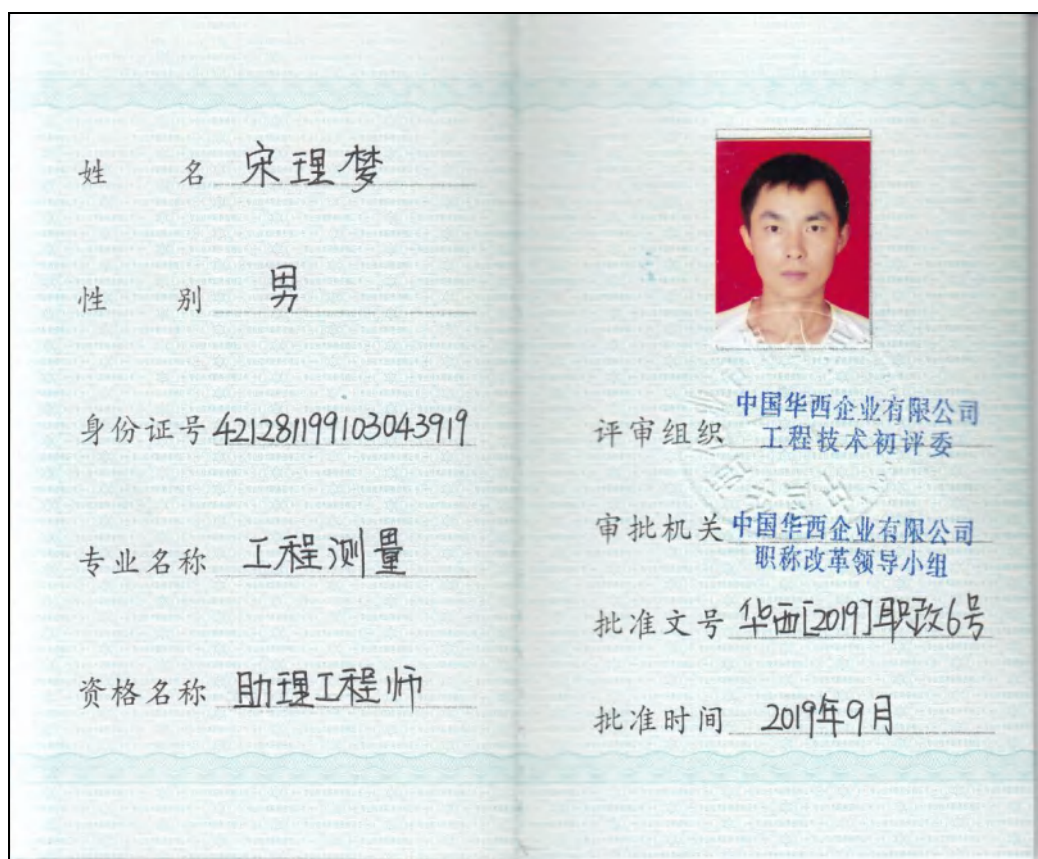 姓名 宋理梦
性别 男
身份证号 421281199103043919
专业名称 工程测量
资格名称 助理工程师
评审组织 中国华西企业有限公司
工程技术初评委
审批机关 中国华西企业有限公司
职称改革领导小组
批准文号 华西[2019]职改6号
批准时间 2019年9月